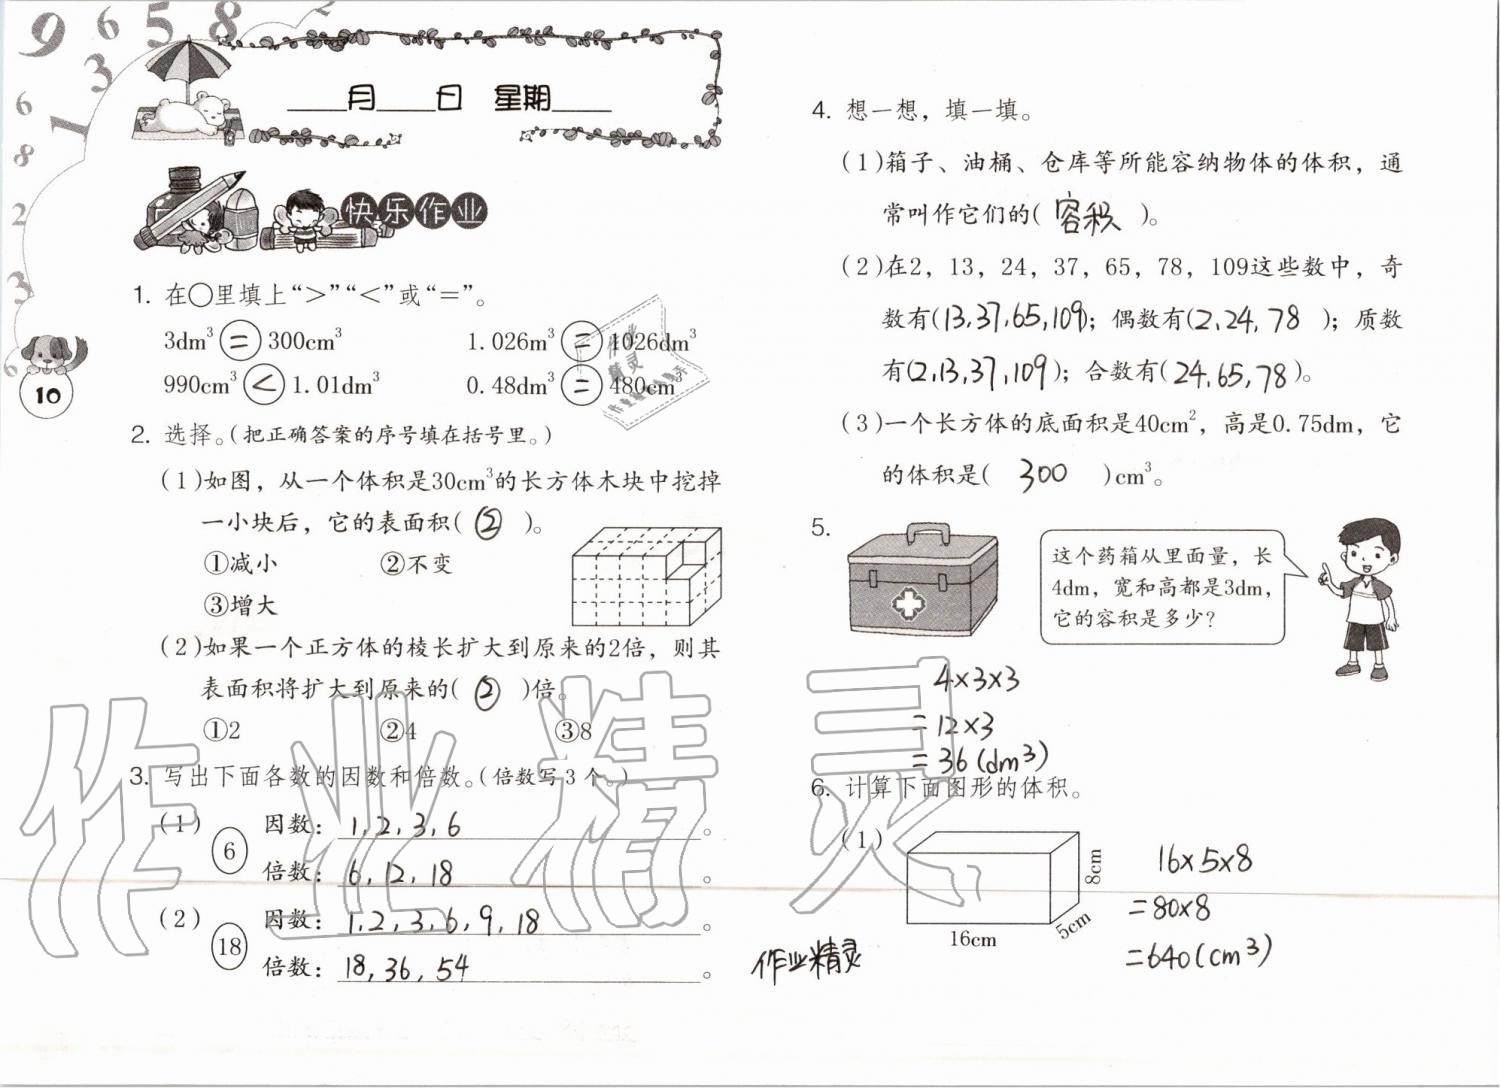 9 6 5 8 2
3
6
1
8
2
3
6
10
____月____日 星期____
快乐作业
1. 在○里填上“>”“<”或“=”。
3dm³ = 300cm³ 1.026m³ = 1026dm³
990cm³ < 1.01dm³ 0.48dm³ = 480cm
2. 选择。(把正确答案的序号填在括号里。)
(1)如图，从一个体积是30cm³的长方体木块中挖掉
一小块后，它的表面积( ② )。
①减小 ②不变
③增大
(2)如果一个正方体的棱长扩大到原来的2倍，则其
表面积将扩大到原来的( ② )倍。
①2 ②4 ③8
3. 写出下面各数的因数和倍数。(倍数写3个。)
(1) 6 因数：1,2,3,6。
倍数：6,12,18。
(2) 18 因数：1,2,3,6,9,18。
倍数：18,36,54。
4. 想一想，填一填。
(1)箱子、油桶、仓库等所能容纳物体的体积，通
常叫作它们的( 容积 )。
(2)在2，13，24，37，65，78，109这些数中，奇
数有(13,37,65,109)；偶数有(2,24,78 )；质数
有(2,13,37,109)；合数有(24,65,78)。
(3)一个长方体的底面积是40cm²，高是0.75dm，它
的体积是( 300 )cm³。
5.
这个药箱从里面量，长
4dm，宽和高都是3dm，
它的容积是多少？
4×3×3
=12×3
=36(dm³)
6. 计算下面图形的体积。
(1)
8cm
5cm
16cm
16×5×8
=80×8
=640(cm³)
作业精灵
作业精灵